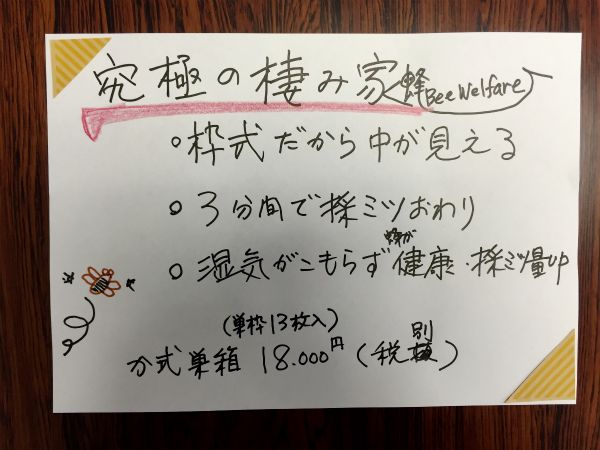 究極の棲み家 蜂 Bee Welfare
・枠式だから中が見える
○3分間で採ミツおわり
○湿気がこもらず蜂が健康・採ミツ量up
(単枠13枚入)
か式巣箱 18.000円(税別)